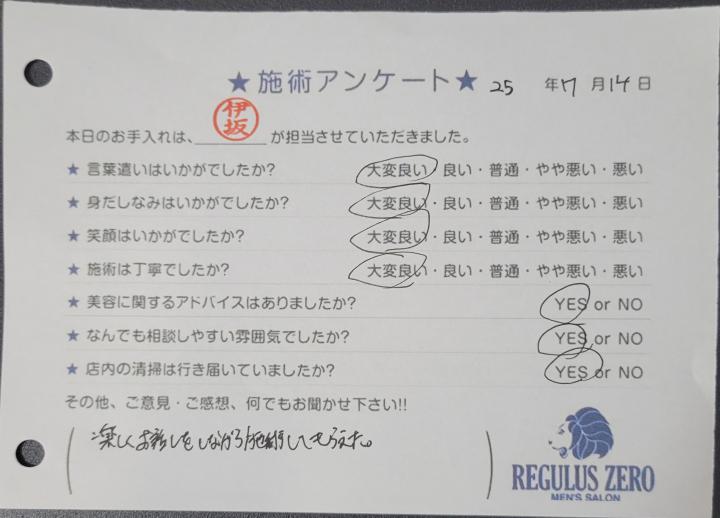 ★施術アンケート★ 25 年 7 月 14 日
本日のお手入れは、伊坂が担当させていただきました。
★ 言葉遣いはいかがでしたか? 大変良い・良い・普通・やや悪い・悪い
★ 身だしなみはいかがでしたか? 大変良い・良い・普通・やや悪い・悪い
★ 笑顔はいかがでしたか? 大変良い・良い・普通・やや悪い・悪い
★ 施術は丁寧でしたか? 大変良い・良い・普通・やや悪い・悪い
★ 美容に関するアドバイスはありましたか? YES or NO
★ なんでも相談しやすい雰囲気でしたか? YES or NO
★ 店内の清掃は行き届いていましたか? YES or NO
その他、ご意見・ご感想、何でもお聞かせ下さい!!
楽しくお話しをしながら施術してもらえた。
REGULUS ZERO
MEN'S SALON